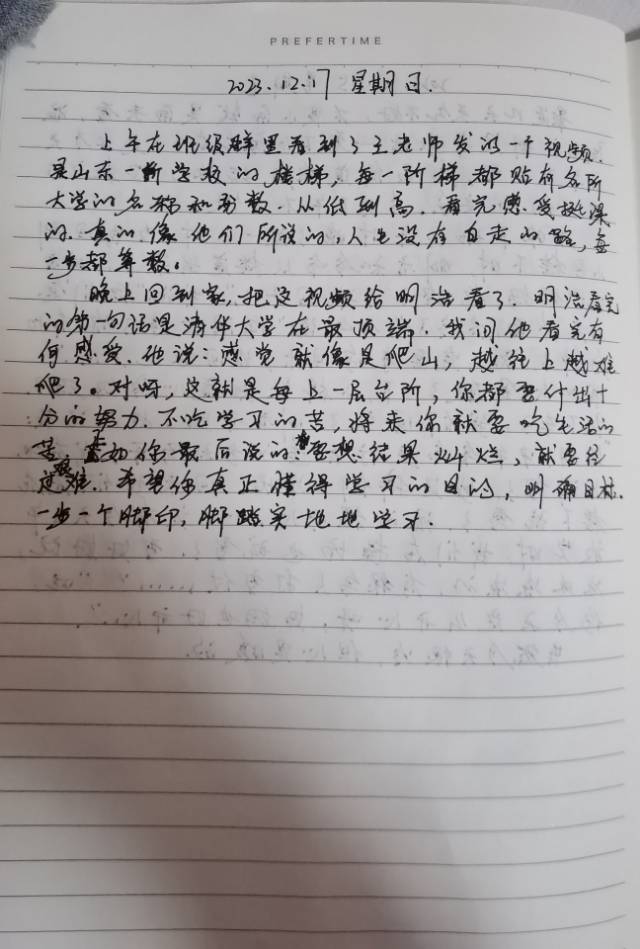 PREFERTIME
2023.12.17 星期日.
上午在班级群里看到了王老师发的一个视频.
是山东一所学校的楼梯, 每一阶梯都贴有各所
大学的名称和分数. 从低到高. 看完感受挺深
的. 真的像他们所说的, 人生没有白走的路, 每
一步都算数。
晚上回到家, 把这视频给明浩看了. 明浩看完
的第一句话是清华大学在最顶端. 我问他看完有
何感受. 他说: 感觉就像是爬山, 越往上越难
爬了。对呀, 这就是每上一层台阶, 你都要付出十
分的努力. 不吃学习的苦, 将来你就要吃生活的
苦, 如你最后说的: 要想结果灿烂, 就要经
过难. 希望你真正懂得学习的目的, 明确目标.
一步一个脚印, 脚踏实地地学习.